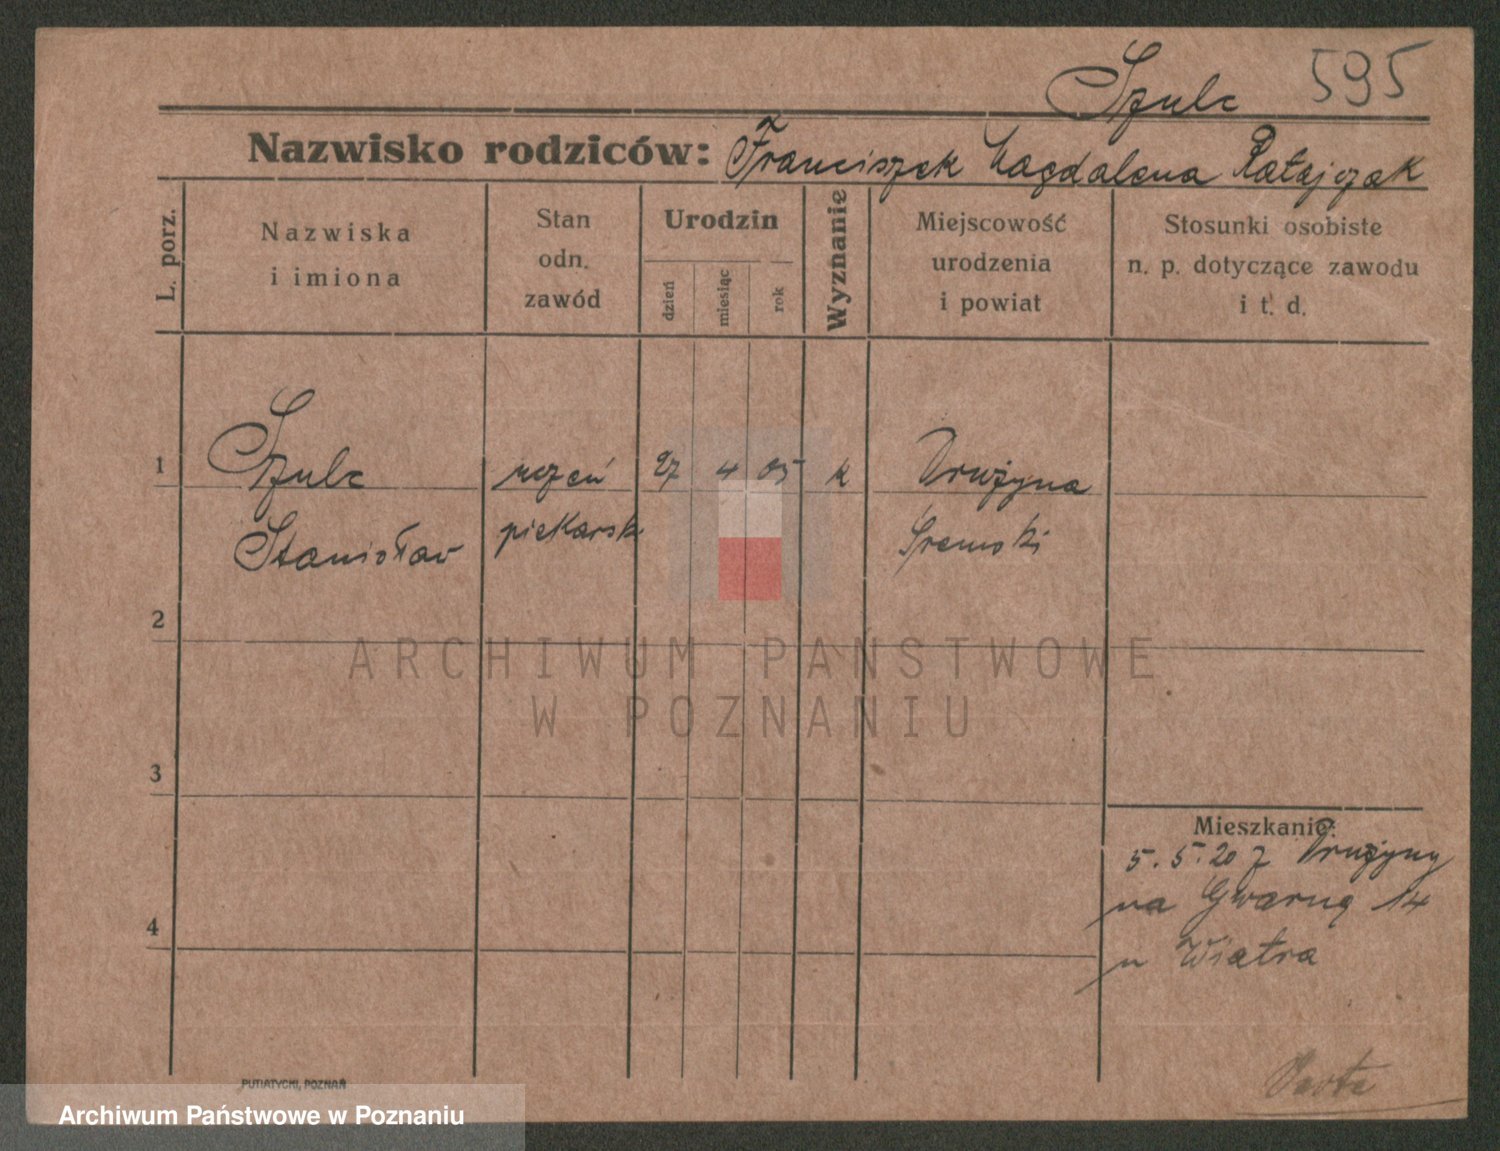 Szulc 595
Nazwisko rodziców: Franciszek Magdalena Ratajczak
L. porz.
Nazwiska
i imiona
Stan
odn.
zawód
Urodzin
dzień
miesiąc
rok
Wyznanie
Miejscowość
urodzenia
i powiat
Stosunki osobiste
n. p. dotyczące zawodu
i t. d.
1 Szulc uczeń 27 4 05 k Drużyna
Stanisław piekarsk Śremski
2
ARCHIWUM PAŃSTWOWE
W POZNANIU
3
Mieszkanie:
5. 5. 20 z Drużyny
na Gwarną 14
u Wiatra
4
PUTIATYCKI, POZNAŃ
Archiwum Państwowe w Poznaniu